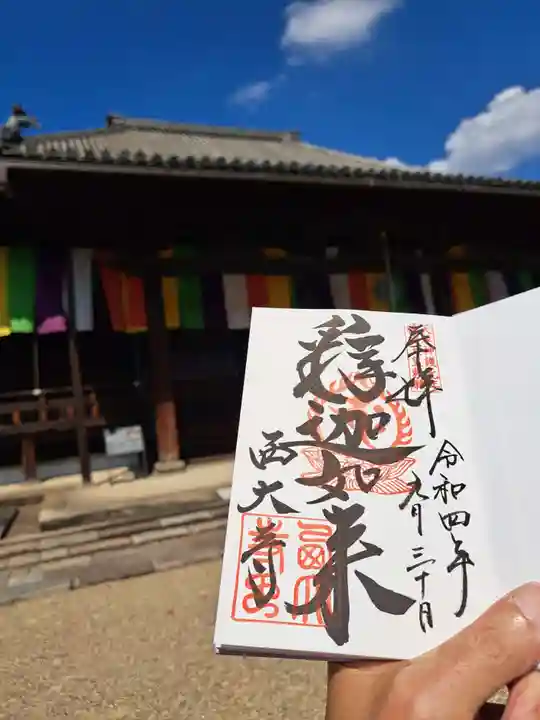 奉拝
令和四年
九月三十日
釋迦如来
西大寺